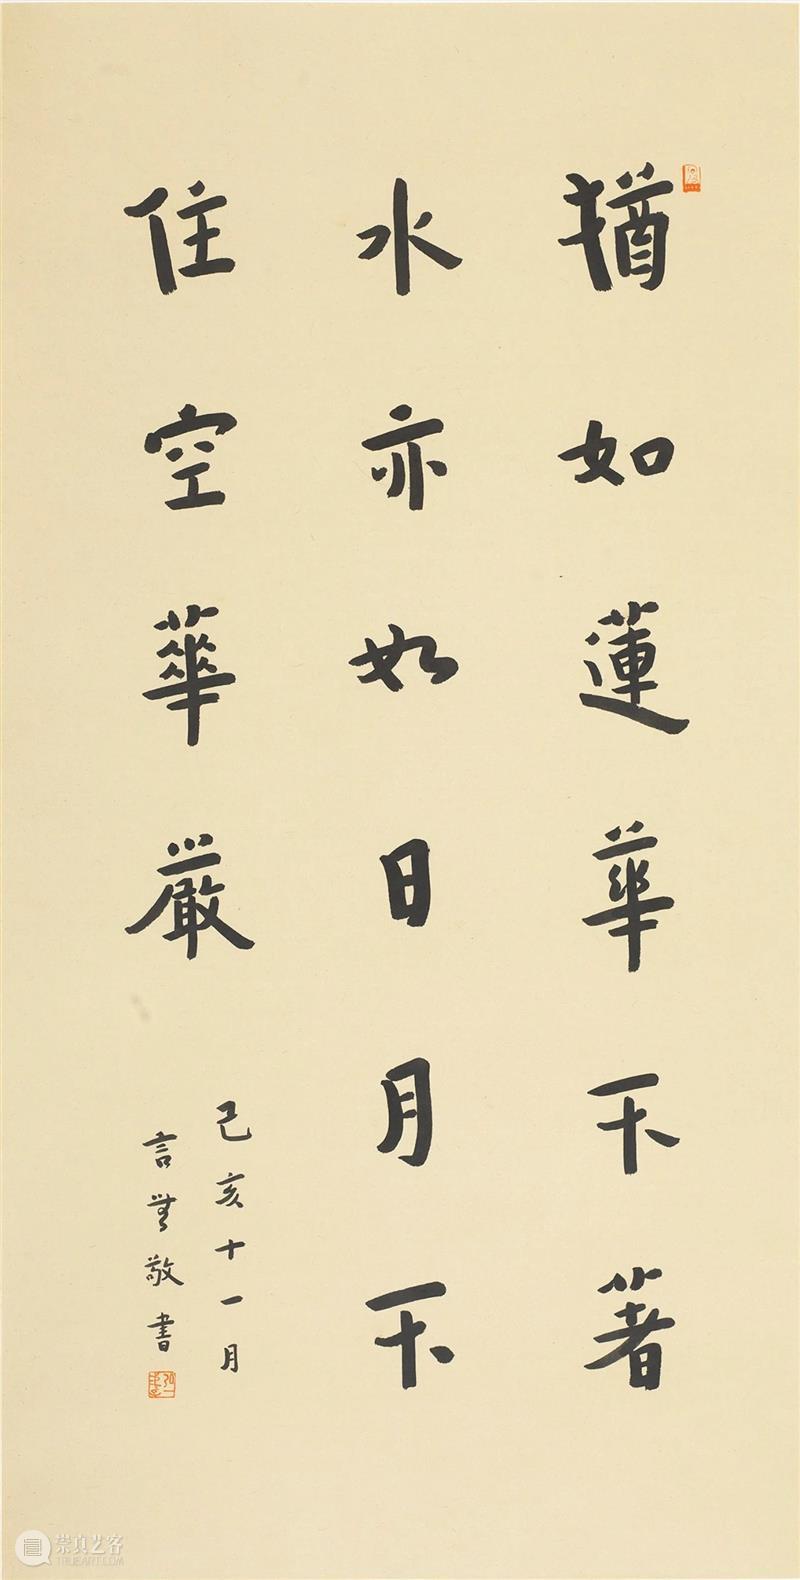 猶如蓮華不著
水亦如日月不
住空華嚴
己亥十一月
言無敬書
崇真艺客
TRUEART.COM